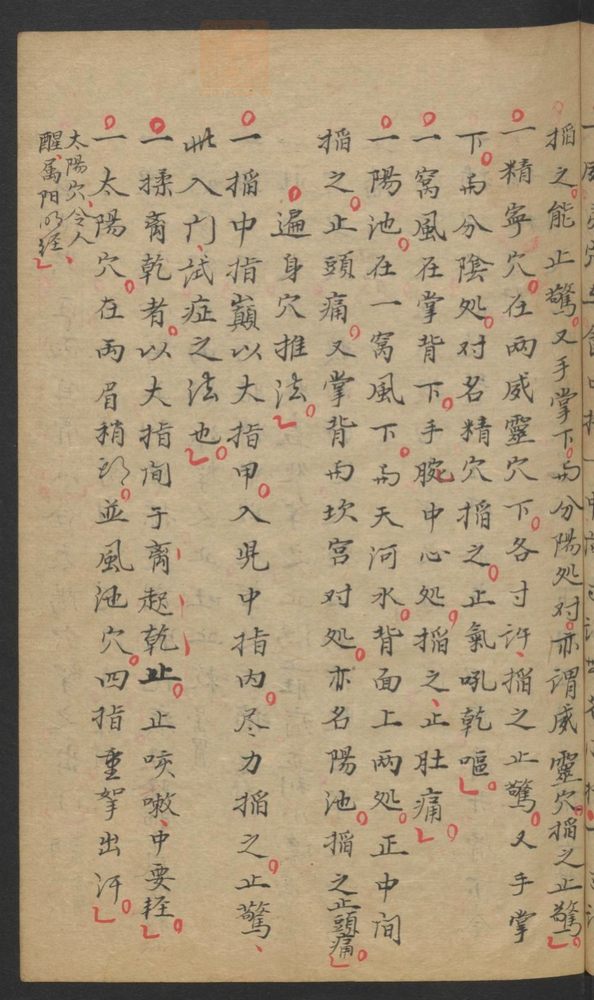 掐之能止驚又手掌下与分陽処对亦謂威靈穴掐之止驚
一精寧穴在两威靈穴下各寸許掐之止驚又手掌
下与分陰処对名精穴掐之止氣吼乾嘔
一窩風在掌背下手腕中心処掐之止肚痛
一陽池在一窩風下与天河水背面上两処正中間
掐之止頭痛又掌背与坎宮对処亦名陽池掐之止頭痛
遍身穴推法
一掐中指巔以大指甲入児中指内尽力掐之止驚
此入门試症之法也
一揉脐乾者以大指間于脐起乾止止咳嗽中要輕
一太陽穴在两眉稍改並風池穴四指重拏出汗
太陽穴令人
醒属阳明経